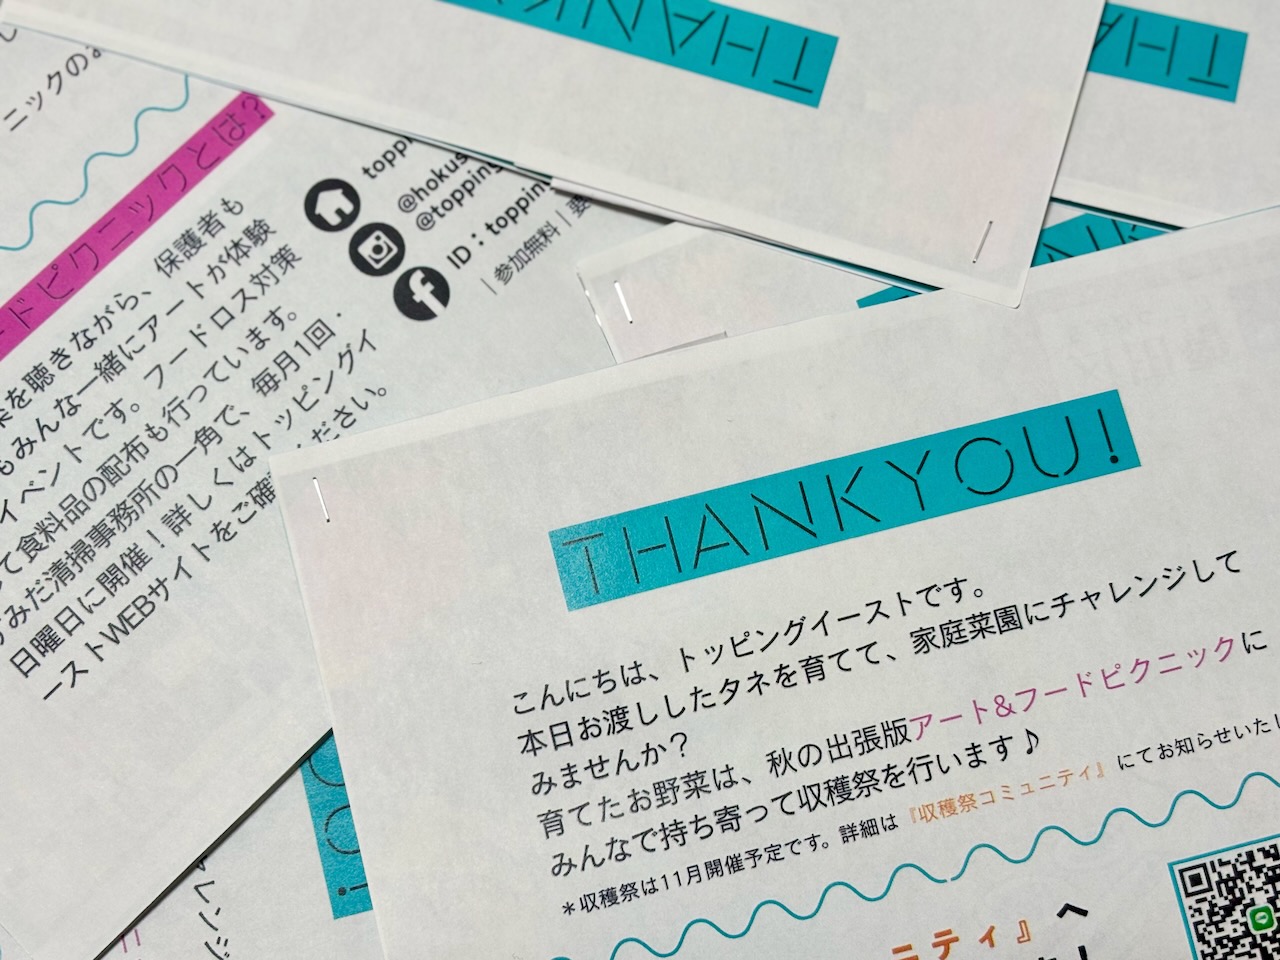 THANK
THA
ニックのお
ドピクニックとは？
を聴きながら、保護者も
もみんな一緒にアートが体験
イベントです。フードロス対策
て食料品の配布も行っています。
みだ清掃事務所の一角で、毎月1回・
日曜日に開催！詳しくはトッピングイ
ーストWEBサイトをご確
ださい。
toppi
@hokus
@topping
ID：topping
｜参加無料｜要
THANKYOU!
こんにちは、トッピングイーストです。
本日お渡ししたタネを育てて、家庭菜園にチャレンジして
みませんか？
育てたお野菜は、秋の出張版アート&フードピクニックに
みんなで持ち寄って収穫祭を行います♪
＊収穫祭は11月開催予定です。詳細は『収穫祭コミュニティ』にてお知らせいたし
ニティ』へ
OU!